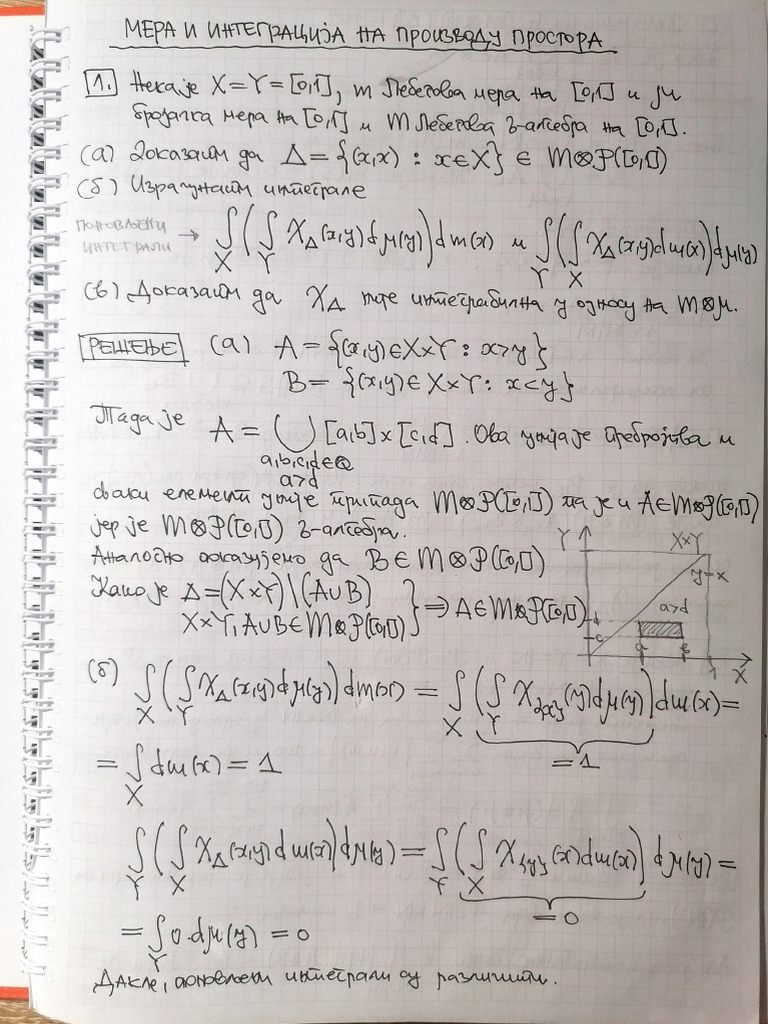 МЕРА И ИНТЕГРАЦИЈА НА ПРОИЗВОДУ ПРОСТОРА
1. Нека је X=Y=[0,1], m Лебегова мера на [0,1] и μ
бројачка мера на [0,1] и M Лебегова σ-алгебра на [0,1].
(а) Доказати да Δ={(x,x) : x∈X} ∈ M⊗P([0,1])
(б) Израчунати интеграле
ПОНОВЉЕНИ ИНТЕГРАЛИ → ∫_X(∫_Y χ_Δ(x,y)dμ(y))dm(x) и ∫_Y(∫_X χ_Δ(x,y)dm(x))dμ(y)
(в) Доказати да χ_Δ није интеграбилна у односу на m⊗μ.
РЕШЕЊЕ (а) A={(x,y)∈X×Y : x>y}
B={(x,y)∈X×Y : x<y}
Тада је A=⋃_{a,b,c,d∈Q, a>d} [a,b]×[c,d]. Ова унија је пребројива и
сваки елемент уније припада M⊗P([0,1]) па је и A∈M⊗P([0,1])
јер је M⊗P([0,1]) σ-алгебра.
Аналогно доказујемо да B∈M⊗P([0,1])
Како је Δ=(X×Y)\(A∪B)
X×Y, A∪B∈M⊗P([0,1]) } ⇒ A∈M⊗P([0,1])
Y X×Y
y=x
a>d
d
c
a b 1 X
(б) ∫_X(∫_Y χ_Δ(x,y)dμ(y))dm(x) = ∫_X(∫_Y χ_{x}(y)dμ(y))dm(x)=
=1
= ∫_X dm(x) = 1
∫_Y(∫_X χ_Δ(x,y)dm(x))dμ(y) = ∫_Y(∫_X χ_{y}(x)dm(x))dμ(y) =
=0
= ∫_Y 0·dμ(y) = 0
Дакле, поновљени интеграли су различити.